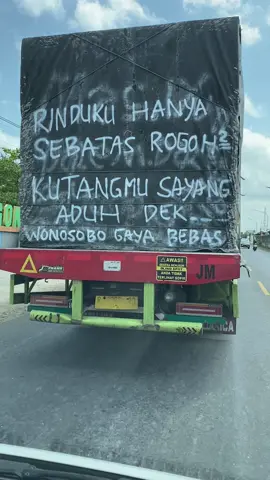 RINDUKU HANYA
SEBATAS ROGOH²
KUTANGMU SAYANG
ADUH DEK...
WONOSOBO GAYA BEBAS
JM
AWAS!!